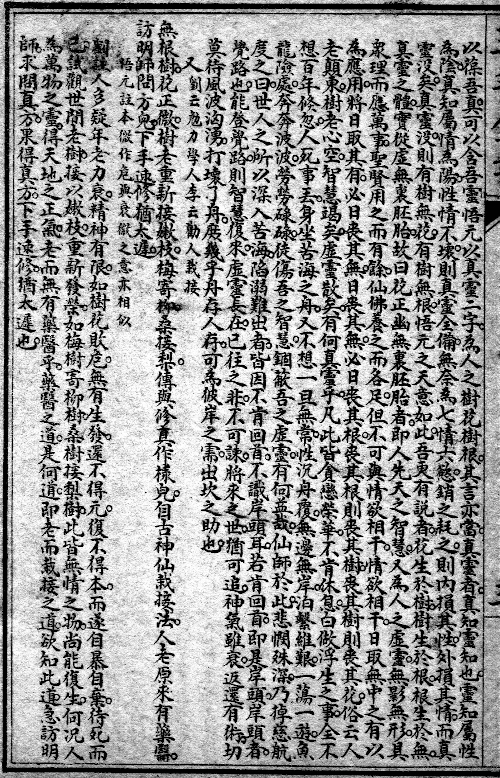 以葆吾真可以含吾靈悟元以真靈二字為人之樹花樹根其言亦當真靈者真知靈知也靈知屬性
為陰真知屬情為陽性情不壞則真靈全備無奈為七情六慾銷之耗之則内損其性外損其情而真
靈沒矣真靈沒則有樹無花有樹無根悟元之天意如此吾更有説者花生於樹樹生於根根生於無
真靈之體實從虛無裏胚胎故曰花正幽無裏胚胎者即人先天之智慧又為人之虛靈無影無形具
衆理而應萬事聖賢用之而有餘仙佛養之而各足但不可與情欲相干情欲相干日取無中之有以
為應用將日取其有必日喪其無日喪其無必日喪其根喪其根則喪其樹喪其樹則喪其花俗云人
老顛東樹老心空智慧竭矣虛靈散矣有何真靈乎凡此皆貪戀榮華不肯休息白做浮生之事全不
想百年倐忽人死事丟身坐苦海之舟又不想一旦無常性沉舟覆無邊無岸泊繫維艱一蕩一遊魚
龍險處奔奔波波勞勞碌碌徒傷吾之智慧錮蔽吾之虛靈有何益哉仙師於此悲憫殊深乃掉慈航
度之曰世人之所以深入苦海陷溺難出者皆因不肯回首不識岸頭耳若肯回首即是岸頭岸頭者
覺路也能登覺路則智慧復來虛靈長在已往之非不可諫將來之世猶可追神氣雖衰返還有術切
莫待風波洶湧打壞了舟庶幾乎舟存人存可為彼岸之需出坎之助也
又劉云勉力學人李云勸人栽接
無根樹花正微樹老重新接嫩枝梅寄柳桑接梨傳與修真作樣兒自古神仙栽接法人老原來有藥醫
訪明師問方兒下手速修猶太遲
悟元註本微作危與衰微之意亦相似
劉註人多疑年老力衰精神有限如樹花敗危無有生發還不得元復不得本而遂自暴自棄待死而
已試觀世間老樹接以嫩枝重新發榮如梅樹寄柳樹桑樹接梨樹此皆無情之物尚能復生何況人
為萬物之靈得天地之正氣老而無有藥醫乎藥醫之道是何道即老而栽接之道欲知此道急訪明
師求問真方果得真方下手速修猶太遲也